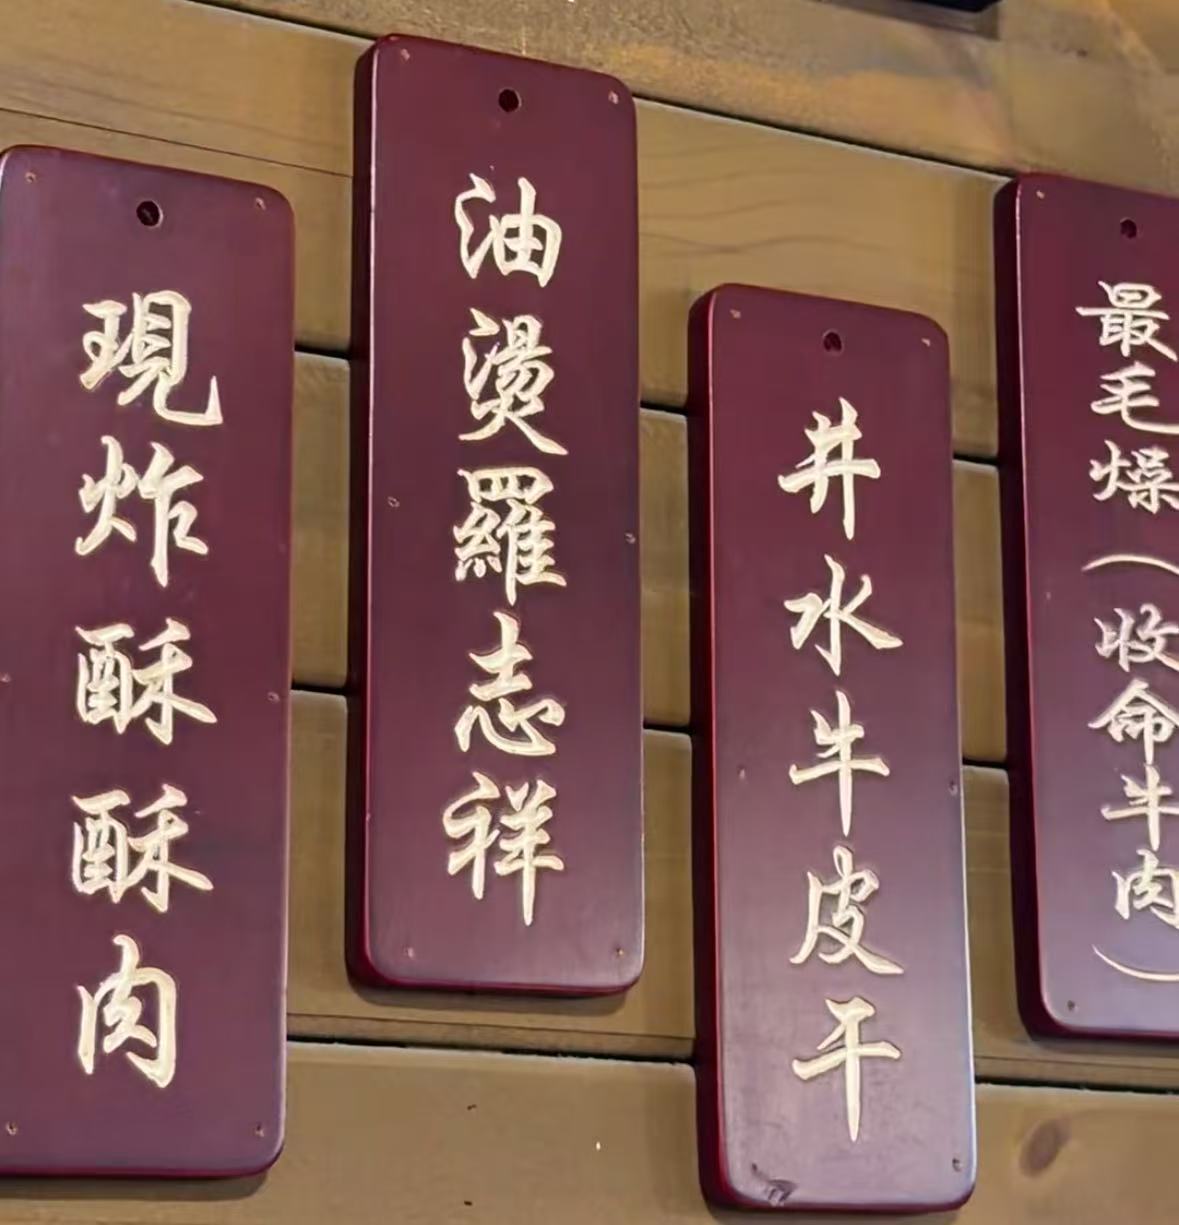 現炸酥酥肉
油燙羅志祥
井水牛皮干
最毛燥（收命牛肉）